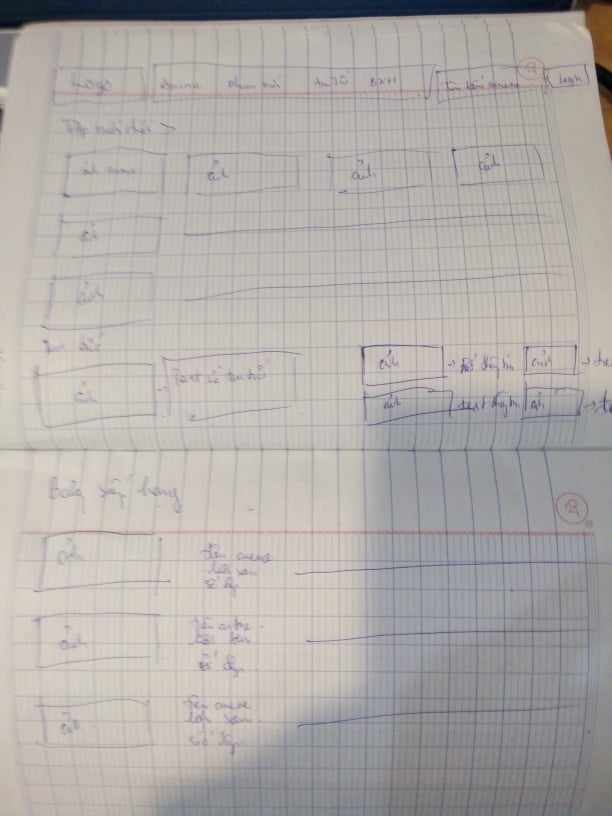 Logo Anime phim mới Tin tức BXH Tìm kiếm anime Login
Tập mới nhất >
ảnh anime ảnh ảnh ảnh
ảnh
ảnh
Tin tức
ảnh Text về tin tức
ảnh → text thông tin ảnh →
ảnh text thông tin ảnh →
Bảng xếp hạng
ảnh
tên anime
lượt xem
số tập
ảnh
tên anime
lượt xem
số tập
ảnh
tên anime
lượt xem
số tập